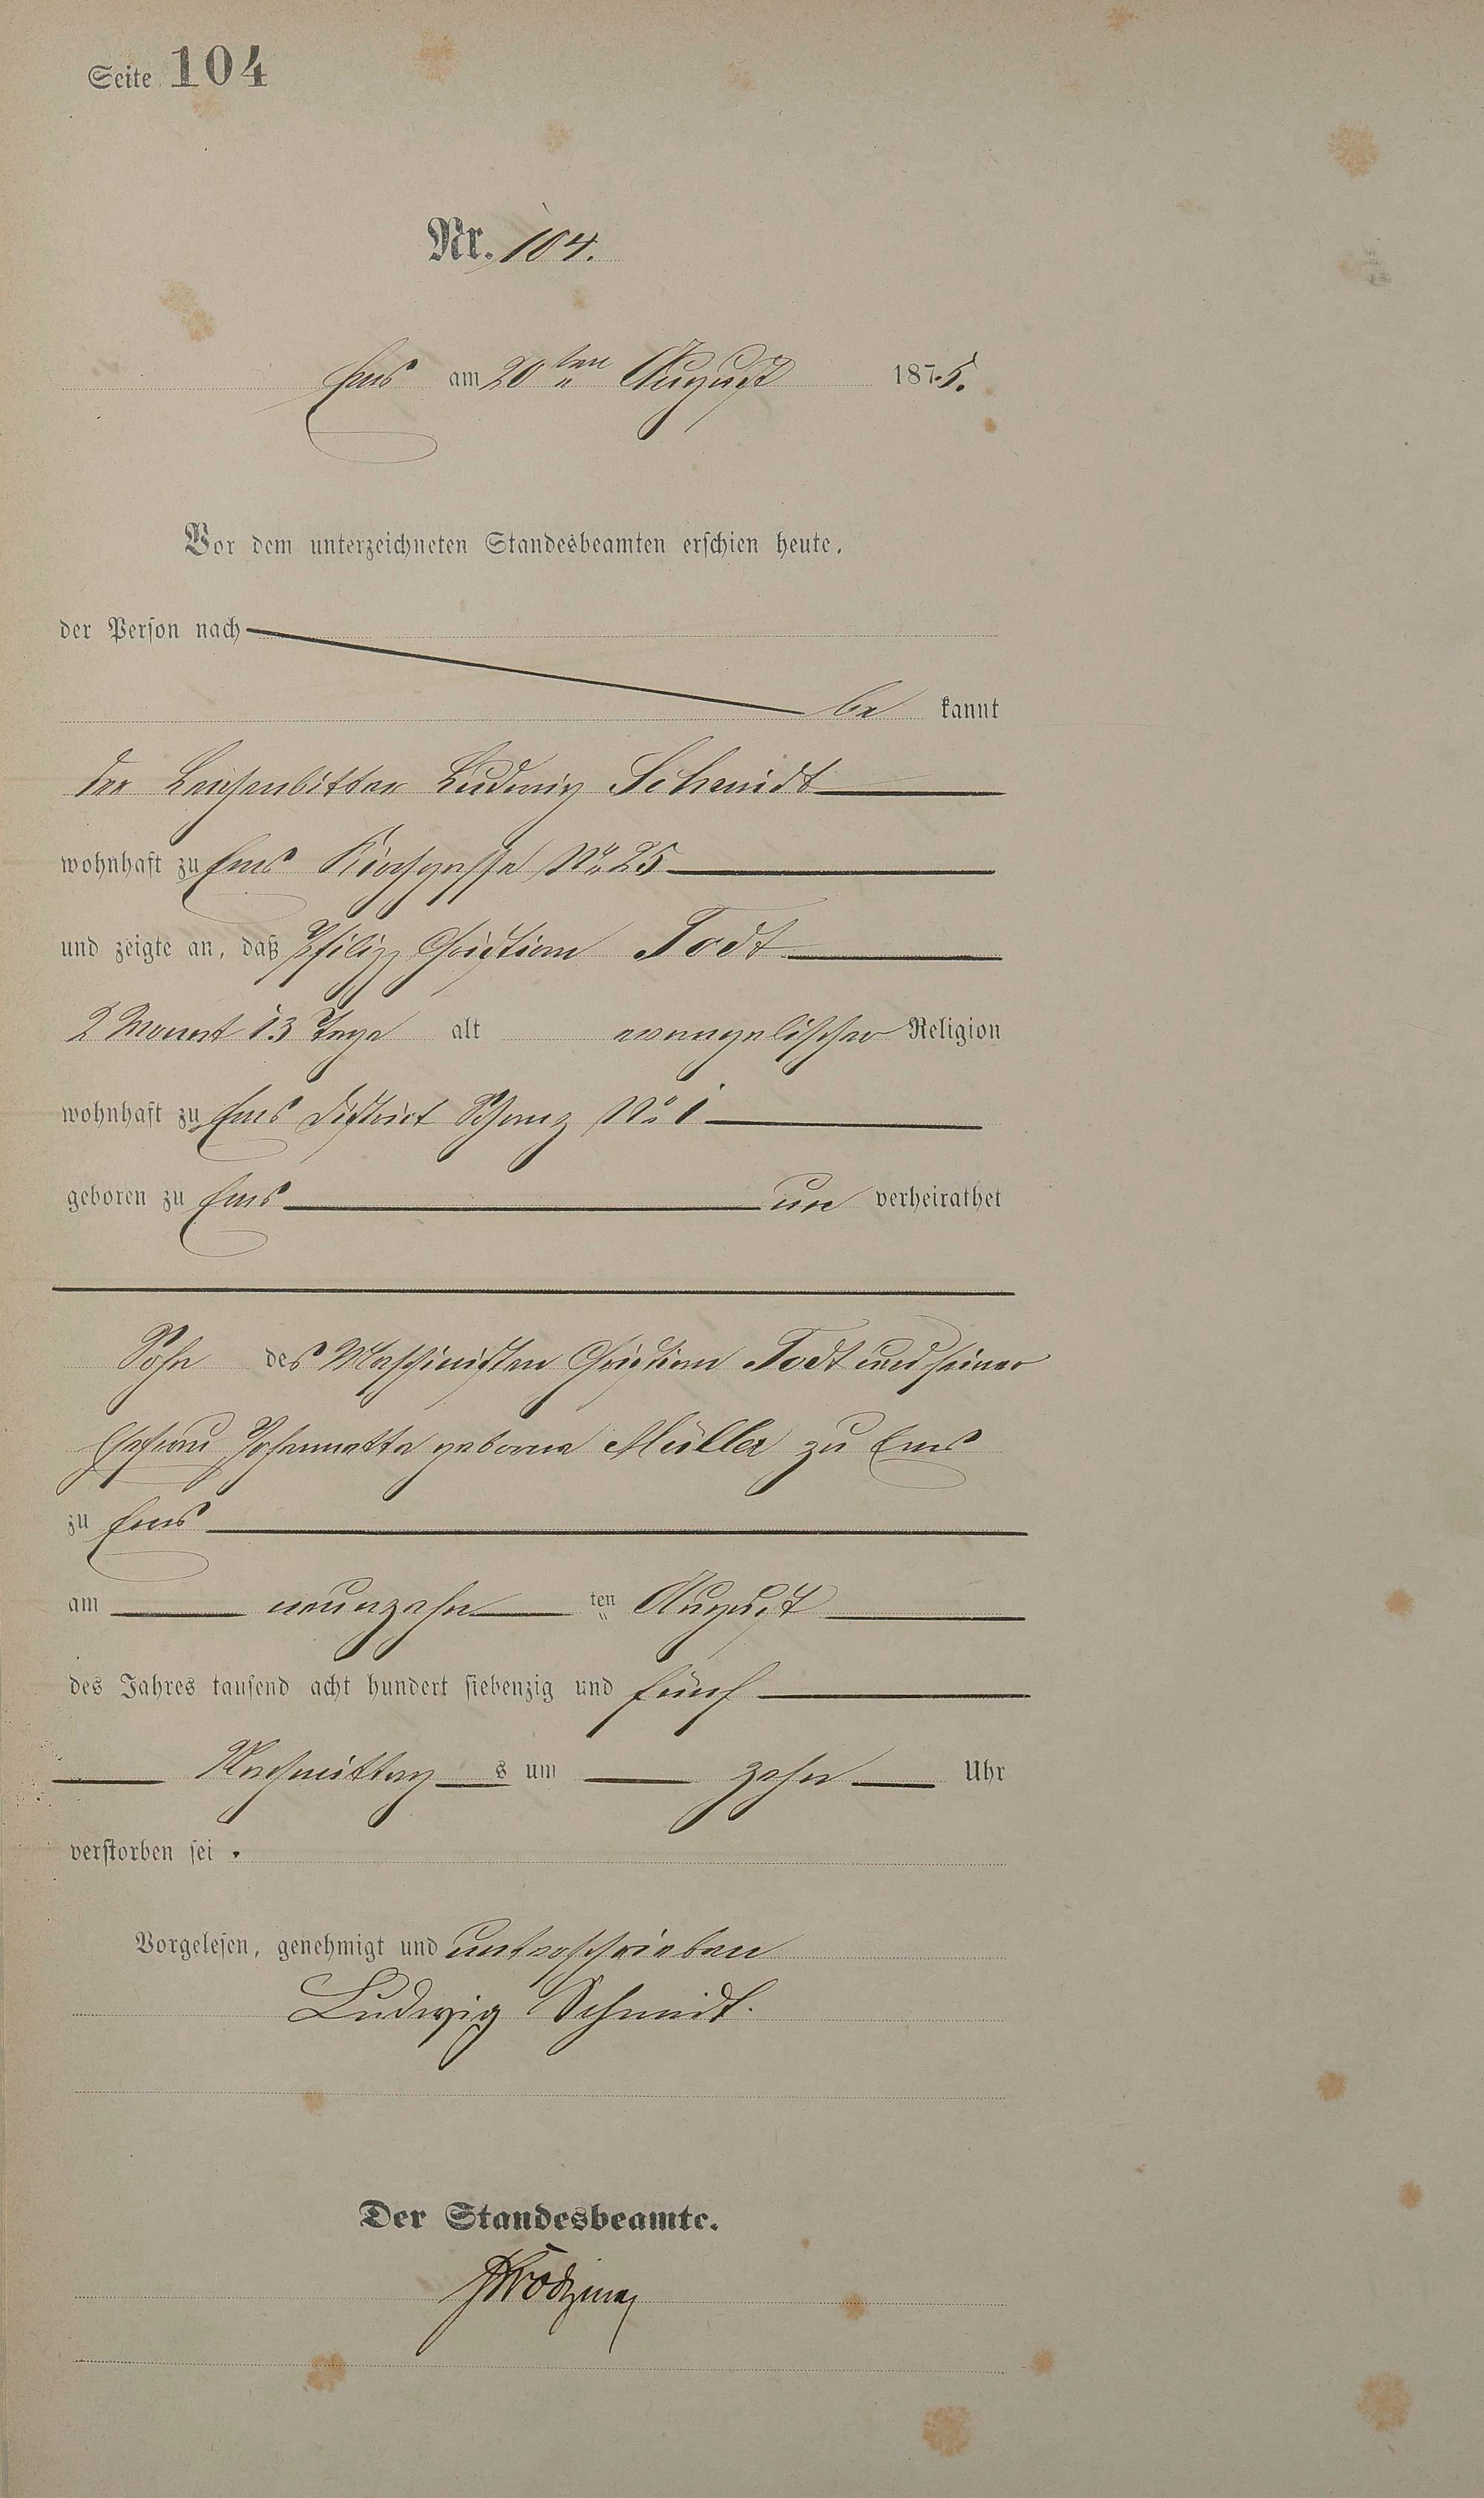 Seite 104
Nr. 104.
Ems am 20ten August 1875.
Vor dem unterzeichneten Standesbeamten erschien heute,
der Person nach
be kannt
der Leichenbitter Ludwig Schmidt
wohnhaft zu Ems Kirchgasse No 25
und zeigte an, daß Philipp Christian Todt
2 Monat 13 Tage alt evangelischer Religion
wohnhaft zu Ems District Schanz No 1
geboren zu Ems un verheirathet
Sohn des Maschinisten Christian Todt und seiner
Ehefrau Johannette geborne Müller zu Ems
zu Ems
am neunzehn ten August
des Jahres tausend acht hundert siebenzig und fünf
Nachmittag s um zehn Uhr
verstorben sei .
Vorgelesen, genehmigt und unterschrieben
Ludwig Schmidt.
Der Standesbeamte.